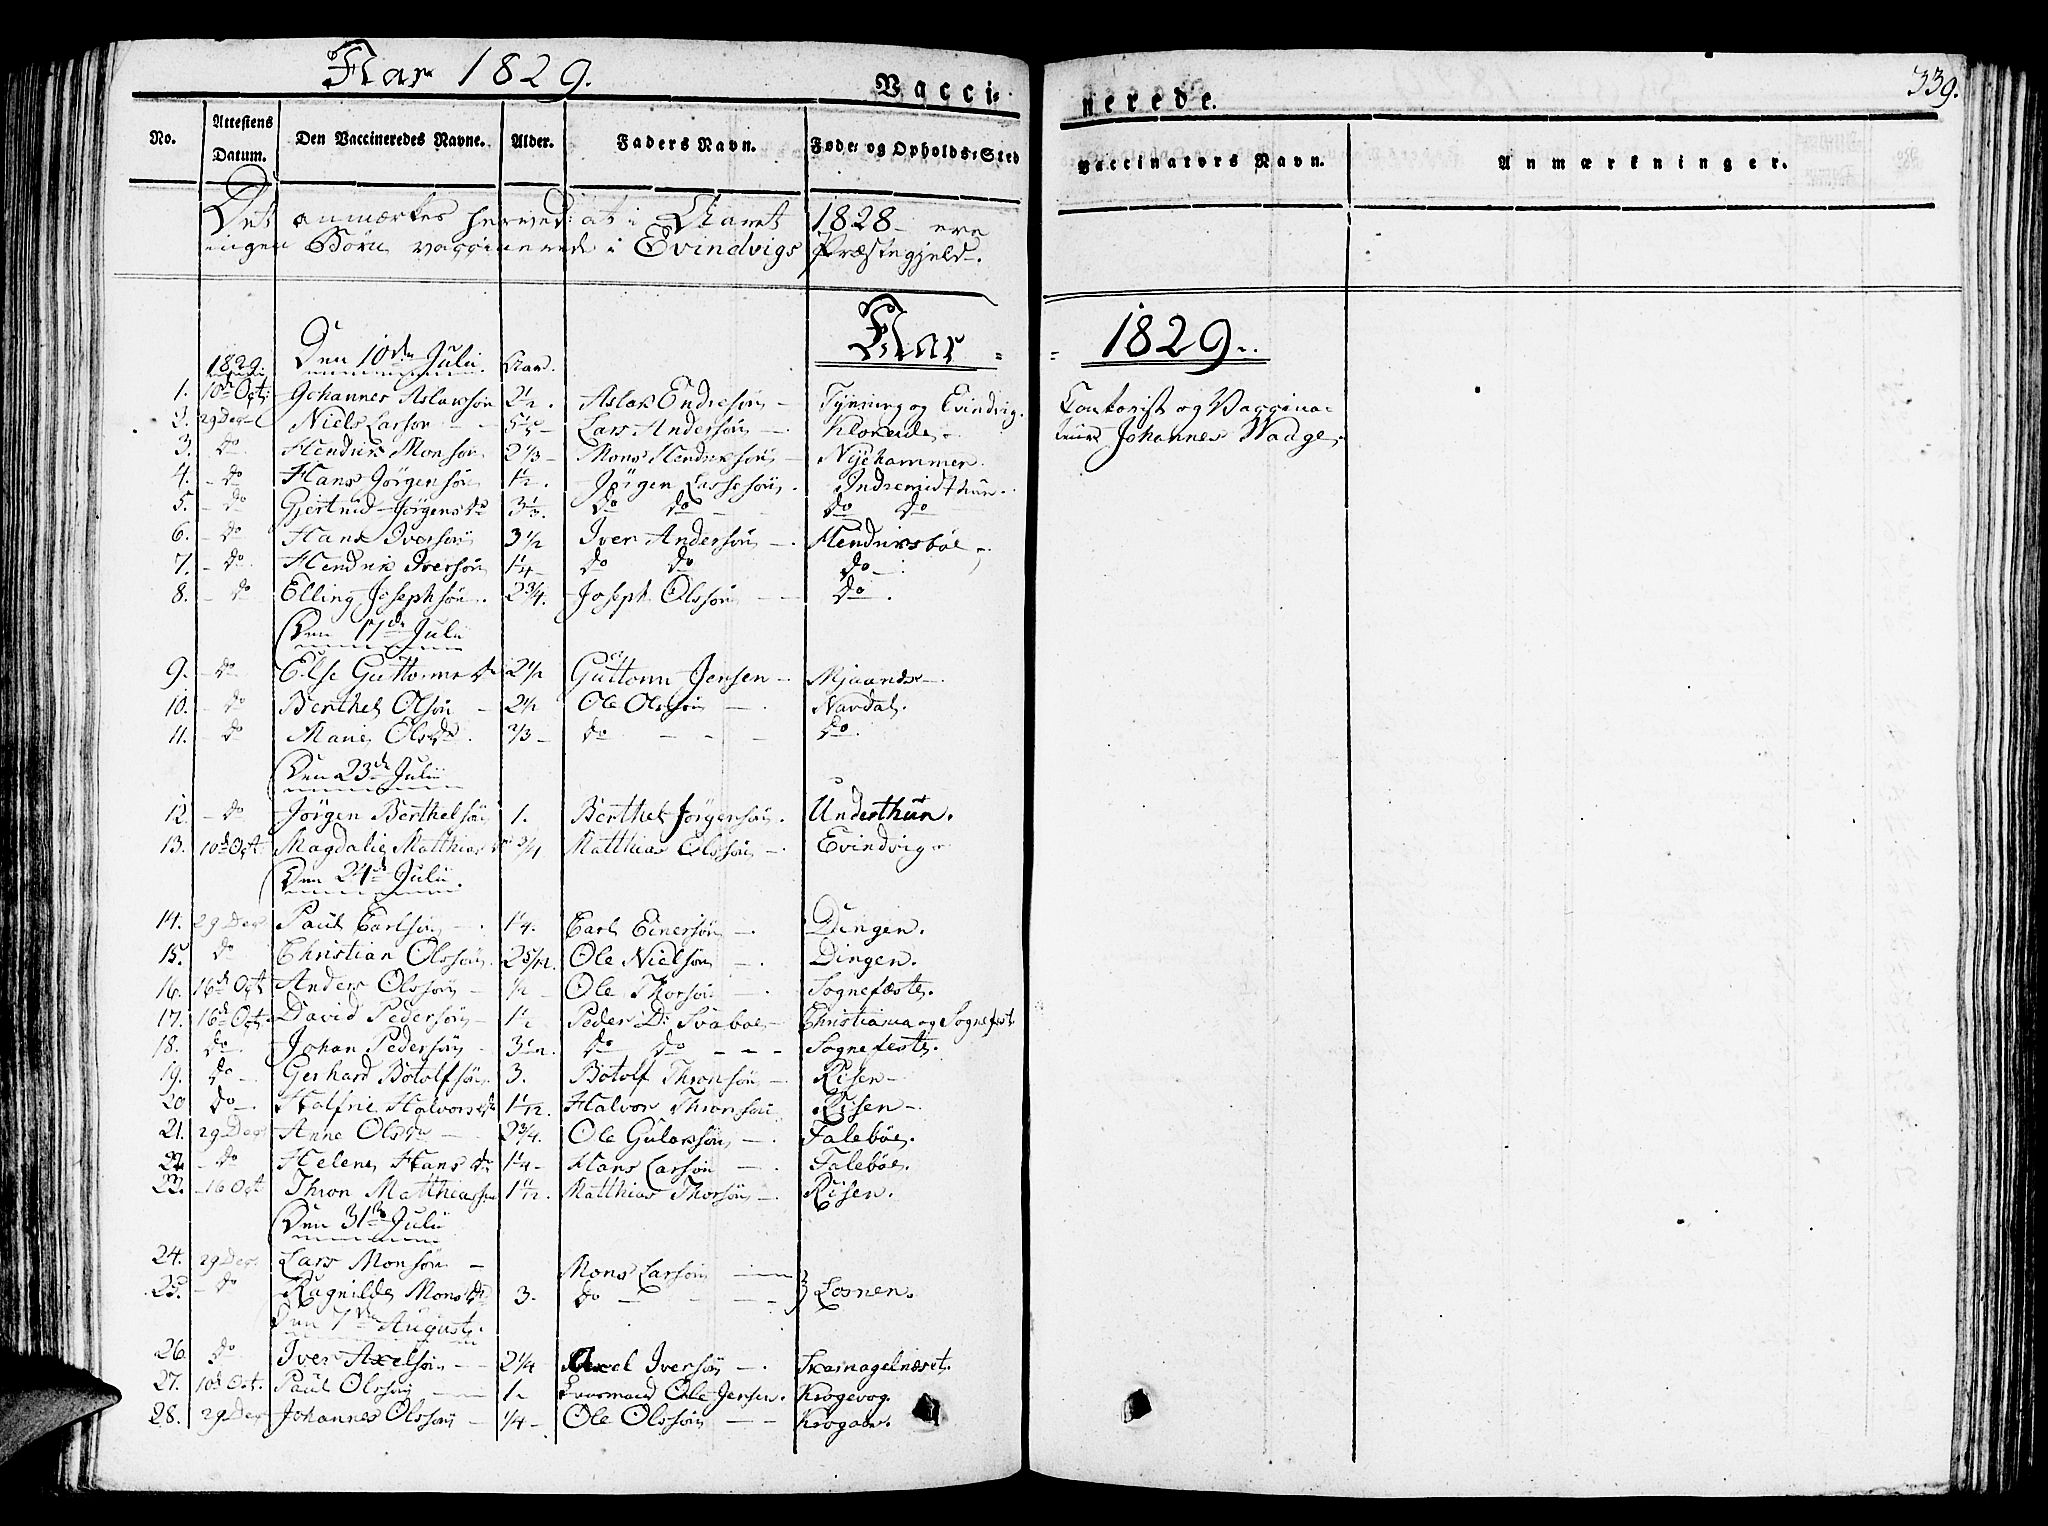 Aar 1829.
Vacci-
nerede.
339.
No.
Attestens Datum.
Den Vaccineredes Navne.
Alder.
Faders Navn.
Føde- og Opholds-Sted
Vaccinators Navn.
Anmærkninger.
Det anmærkes herved: at i Aaret 1828 - ere
ingen Børn vaccinerede i Evindvigs Præstegjeld.
Aar = = 1829.
1829. Den 10de Julii. Aar.
1. 10de Oct: Johannes Aslaksøn 2 1/2. Aslak Endresøn - og Evindvig. Contorist og Vaccina-
2. 29 Dec. Niels Larsøn 5/5 - Lars Andersøn - teur Johannes Waage.
3. do. Hendrik Monsøn 2 1/3 - Mons Hendriksøn - Nyehammer.
4. - do Hans Jörgensøn 1 1/2. Jörgen Lassesøn. Indremidthun.
5. - do Gjertrud Jörgensdr 3 1/3. do do - - do do
6. - do Hans Iversøn 3 1/2 Iver Andersøn -. Hendriksböe -.
7. - do. Hendrik Iversøn 1/4 - do do do -.
8. - do Elling Josephsøn. 2 3/4. Joseph Olssøn - - do.
Den 17de Julii
9. - do Else Guttormsdr 2 1/2 Guttorm Jensen - Mjaanes -.
10. - do Berthel Olsøn - 2 1/2 Ole Olssøn -. Nordal.
11. - do Marie Olsdr. 2/3 - do - - - do.
Den 23de Julii
12. - do Jörgen Berthelsøn 1. Berthel Jörgensøn. Underthun.
13. 10de Oct. Magdalie Matthiasdr 3/4 Matthias Olssøn -. Evindvig -
Den 24de Julii
14. 29 Dec. Paul Carlsøn -. 1/4. Carl Einersøn -. Dingen.
15. do Christian Olssøn. 2 5/12. Ole Nielsøn -. Dingen.
16. 16de Oct Anders Olssøn - 1/2 - Ole Thorsøn -. Sognefæste.
17. 16de Oct. David Pedersøn - 1 1/2 Peder D: Svaboe - Christiania og Sognefest
18. do. Johan Pedersøn - 3 1/2. do do - - - Sognefeste.
19. do -. Gerhard Botolfsøn. 3. Botolf Thronsøn -. Risen -
20 do -. Halvorsdr 1 1/12. Halvor Thronsøn Risen -.
21. 29 Dec. Anne Olsdr -. 2 3/4. Ole Gulaksøn -. Faleböe.
22. - do Helene Hansdr 1/4 - Hans Larsøn -. Faleböe.
23. - 16 Oct Thron Matthiassøn 1 1/12. Matthias Thorsøn -. Risen.
Den 31te Julii
24. 29 Dec. Lars Monsøn - Mons Larsøn -
25. - do Ragnilde Monsdr 3. do - - - - } Losnen.
Den 7de August.
26. do Iver Axelsøn - - 2 1/4 Axel Iversøn -.
27. 10de Oct. Paul Olssøn - 1 - Ole Jensen.
28. 29 Dec Johannes Olssøn - 1/4 - Ole Olssøn - -